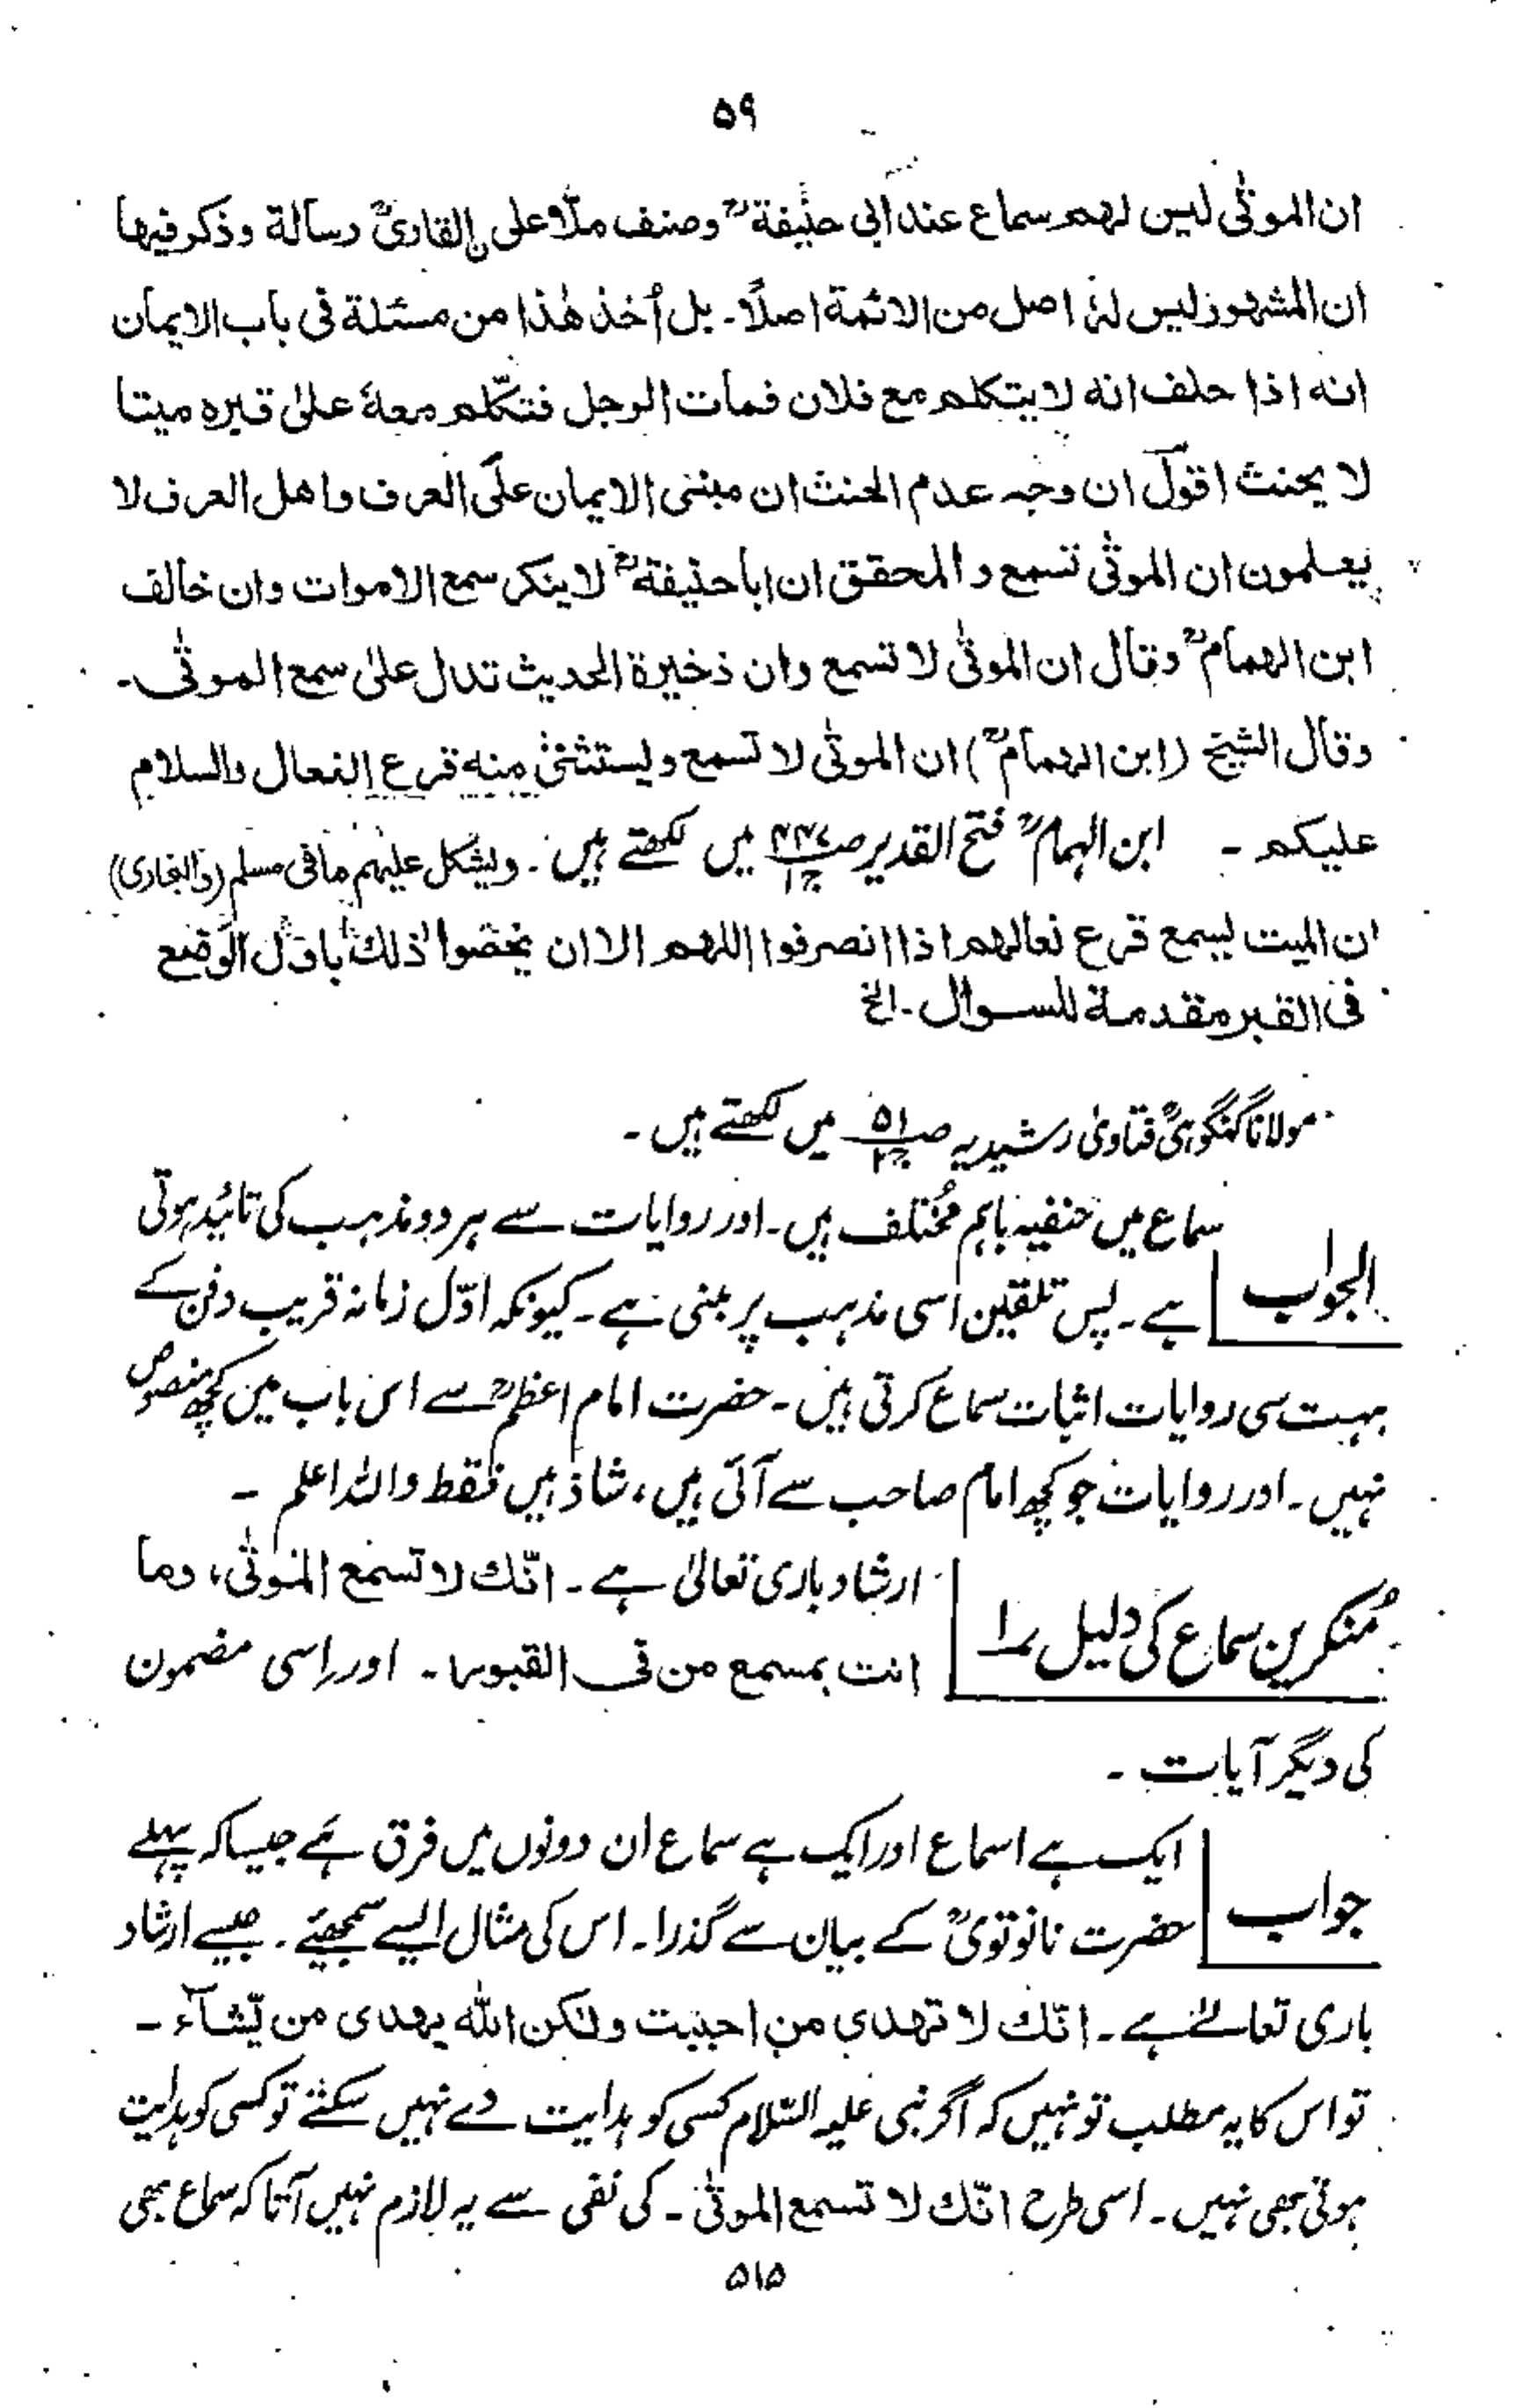 ۵۹
ان الموتٰی لیس لہم سماع عند ابی حنیفة ؒ وصنف ملّا علی القاریؒ رسالة وذکر فیہا
ان المشہور لیس لہٗ اصل من الائمة اصلًا۔ بل اُخذ ھٰذا من مسئلة فی باب الایمان
انہ اذا حلف انہ لا یتکلم مع فلان فمات الرجل فتکّلم معہٗ علیٰ قبرہ میتا
لا یحنث اقول ان وجہ عدم الحنث ان مبنی الایمان علی العرف واھل العرف لا
یعلمون ان الموتٰی تسمع و المحقق ان ابا حنیفة ؒ لا ینکر سمع الاموات وان خالف
ابن الہمام ؒ وقال ان الموتٰی لا تسمع وان ذخیرة الحدیث تدل علیٰ سمع الموتٰی۔
وقال الشیخ (ابن الہمام ؒ) ان الموتٰی لا تسمع ویستثنیٰ منہ قرع النعال والسلام
علیکم ۔ ابن الہمام ؒ فتح القدیر ص۴۴۷ ج۱ میں لکھتے ہیں ۔ ویشکل علیہم ما فی مسلم (والبخاری)
ان المیت لیسمع قرع نعالہم اذا انصرفوا اللہم الا ان یخصوا ذلك باوّل الوضع
فی القبر مقدمة للسوال ۔ الخ
مولانا گنگوہیؒ فتاویٰ رشیدیہ ص۵۱ ج۲ میں لکھتے ہیں ۔
الجواب سماع میں حنفیہ باہم مُختلف ہیں۔ اور روایات سے ہر دو مذہب کی تائید ہوتی
ہے۔ پس تلقین اسی مذہب پر مبنی ہے۔ کیونکہ اوّل زمانہ قریب دفن کے
بہت سی روایات اثبات سماع کرتی ہیں۔ حضرت امام اعظم ؒ سے اس باب میں کچھ منصوص
نہیں۔ اور روایات جو کچھ امام صاحب سے آئی ہیں، شاذ ہیں فقط واللہ اعلم ۔
مُنکرین سماع کی دلیل ۱ ارشاد باری تعالیٰ ہے۔ انّك لا تسمع الموتٰی، وما
انت بمسمع من فی القبور۔ اور اِسی مضمون
کی دیگر آیات ۔
جواب ایک ہے اسماع اور ایک ہے سماع ان دونوں میں فرق ہَے جیسا کہ پہلے
حضرت نانوتویؒ کے بیان سے گذرا۔ اس کی مثال ایسے سمجھیئے۔ جیسے ارشاد
باری تعالےٰ ہے۔ انّك لا تہدی من احببت ولٰکن اللّٰہ یہدی من یّشآء ۔
تو اس کا یہ مطلب تو نہیں کہ اگر نبی علیہ السّلام کسی کو ہدایت دے نہیں سکتے تو کسی کو ہدایت
ہوتی بھی نہیں۔ اسی طرح انّك لا تسمع الموتٰی۔ کی نفی سے یہ لازم نہیں آتا کہ سماع بھی
۵۱۵